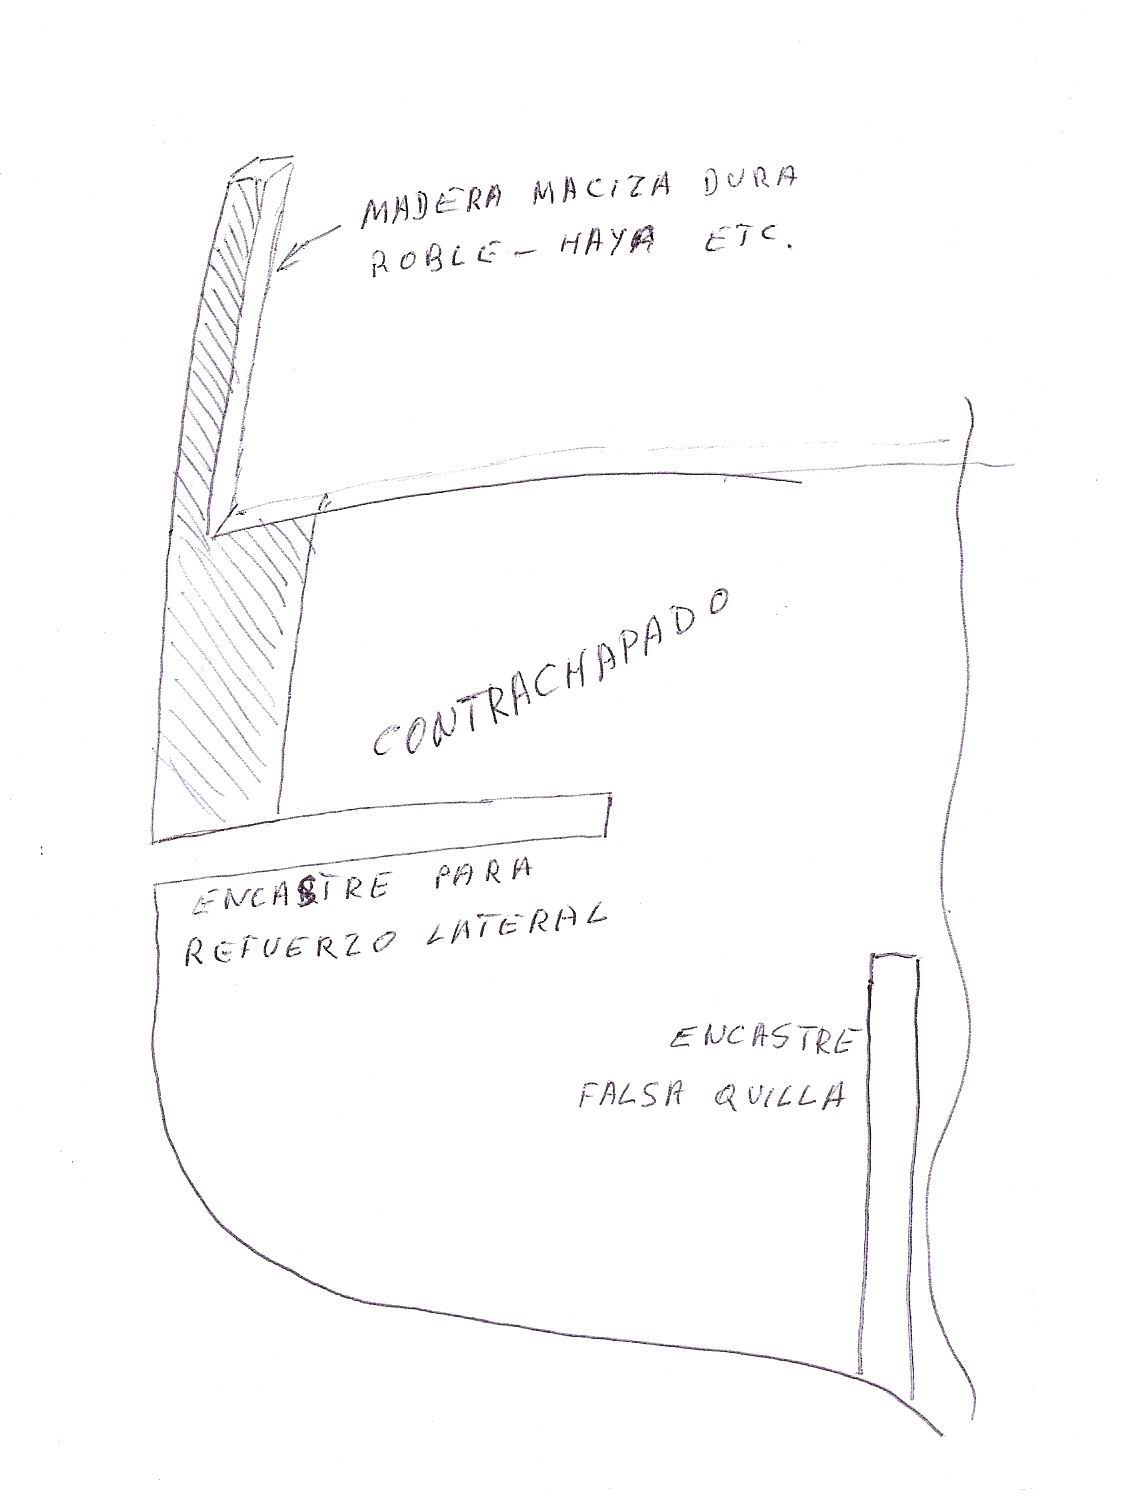 MADERA MACIZA DURA
ROBLE - HAYA ETC.
CONTRACHAPADO
ENCASTRE PARA
REFUERZO LATERAL
ENCASTRE
FALSA QUILLA